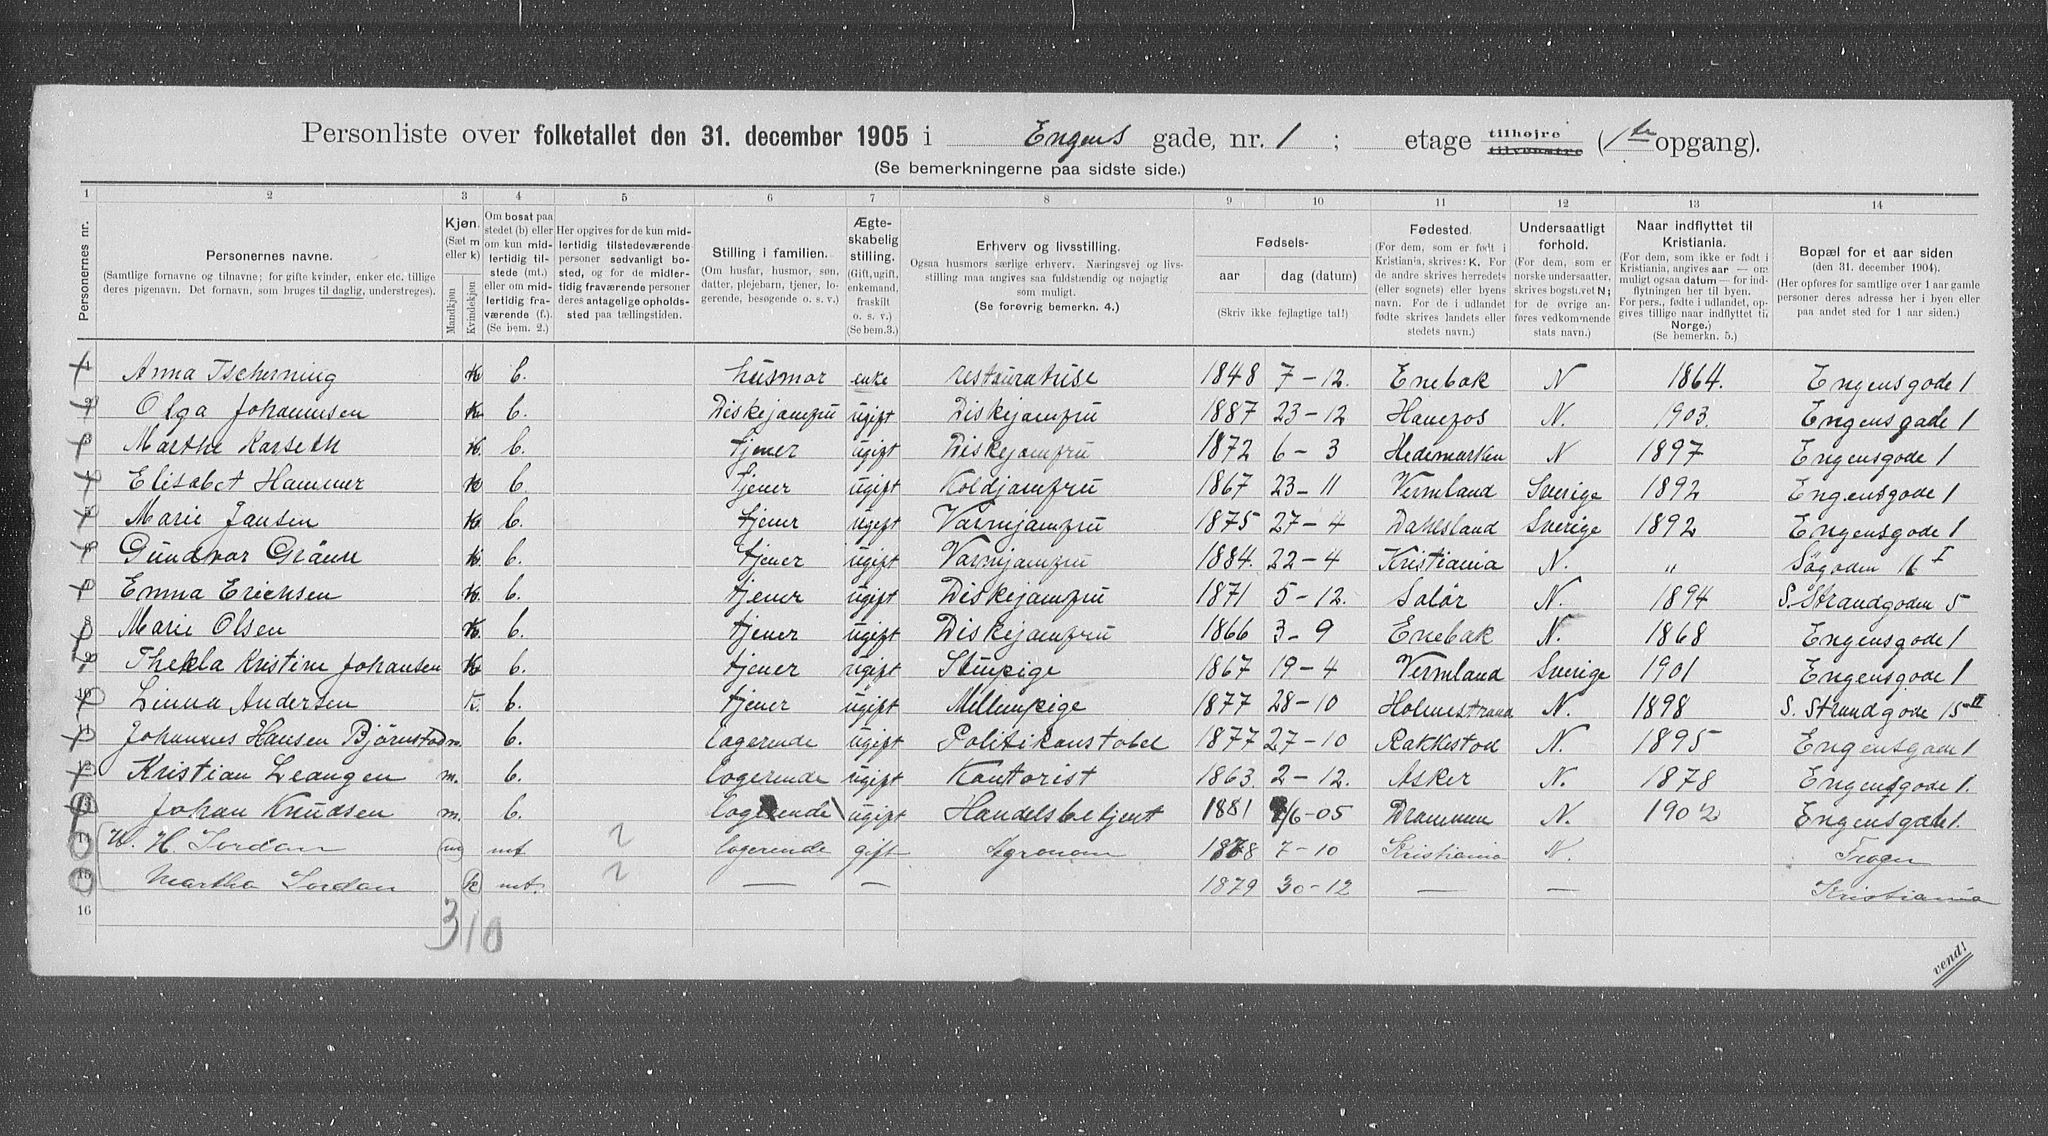 Personliste over folketallet den 31. december 1905 i Engens gade, nr. 1 ; etage tilhøjre tilvenstre (1ste opgang).
(Se bemerkningerne paa sidste side.)
1 2 3 4 5 6 7 8 9 10 11 12 13 14
Personernes nr.
Personernes navne.
(Samtlige fornavne og tilnavne; for gifte kvinder, enker etc. tillige deres pigenavn. Det fornavn, som bruges til daglig, understreges).
Kjøn.
(Sæt m eller k)
Mandkjøn
Kvindekjøn
Om bosat paa stedet (b) eller om kun midlertidig tilstede (mt.) eller om midlertidig fraværende (f.). (Se bem. 2.)
Her opgives for de kun midlertidig tilstedeværende personer sedvanligt bosted, og for de midlertidig fraværende personer deres antagelige opholdssted paa tællingstiden.
Stilling i familien.
(Om husfar, husmor, søn, datter, plejebarn, tjener, logerende, besøgende o. s. v.)
Ægteskabelig stilling.
(Gift, ugift, enkemand, fraskilt o. s. v.)
(Se bem. 3.)
Erhverv og livsstilling.
Ogsaa husmors særlige erhverv. Næringsvej og livsstilling maa angives saa fuldstændig og nøjagtig som muligt.
(Se forøvrig bemerkn. 4.)
Fødsels-
aar
dag (datum)
(Skriv ikke fejlagtige tal!)
Fødested.
(For dem, som er født i Kristiania, skrives: K. For de andre skrives herredets (eller sognets) eller byens navn. For de i udlandet fødte skrives landets eller stedets navn.)
Undersaatligt forhold.
(For dem, som er norske undersaatter, skrives bogstavet N; for de øvrige anføres vedkommende stats navn.)
Naar indflyttet til Kristiania.
(For dem, som ikke er født i Kristiania, angives aar — om muligt ogsaa datum — for indflytningen her til byen. For pers., fødte i udlandet, opgives tillige naar indflyttet til Norge.)
(Se bemerkn. 5.)
Bopæl for et aar siden
(den 31. december 1904).
(Her opføres for samtlige over 1 aar gamle personer deres adresse her i byen eller paa andet sted for 1 aar siden.)
1 Anna Tscherning k b. husmor enke restauratrise 1848 7-12. Enebak N 1864. Engensgade 1
2 Olga Johannsen k. b. Diskejomfru ugift Diskejomfru 1887 23-12 N. 903. Engensgade 1
3 Marthe Karseth k. b. tjener ugift Diskejomfru 1872 6-3 Hedemarken N 1897 Engensgade 1
4 Elisabet Hammer k b tjener ugift Koldjomfru 1867 23-11 Vermland Sverige 1892 Engensgade 1
5 Marie Jansen k. b. tjener ugift Varmjomfru 1875 27-4 Dahlsland Sverige 1892 Engensgade 1
6 Gundvor k. b. tjener ugift Varmjomfru 1884. 22-4 Kristiania N. " Søgaden 16 I
7 Emma Erichsen k. b. tjener ugift Diskejomfru 1871 5-12. Solør N. 1894 S. Strandgaden 5
8 Marie Olsen k. b. tjener ugift Diskejomfru 1866 3-9 Enebak N. 1868 Engensgade 1
9 Thekla Kristine Johansen k b. tjener ugift Stupige 1867 19-4 Vermland Sverige 1901 Engensgade 1
10 Linna Andersen k. b. tjener ugift Mellempige 1877 28-10 Holmestrand N. 1898 S. Strandgade 15 II
11 Johannes Hansen Bjørnstad m. b. logerende ugift Politikonstabel 1877 27-10 Rakkestad N. 1895 Engensgade 1
12 Kristian Leangen m. b. logerende ugift Kontorist 1863. 2-12. Asker N. 1878 Engensgade 1.
13 Johan Knudsen m. b. logerende ugift Handelsbetjent 1881 /6-05 Drammen N. 1902 Engensgade 1.
14 W. H. Jordan m mt 2 logerende gift Agronom 1878 7-10 Kristiania N. Frogn
15 Martha Jordan k mt. 2 — — 1879 30-12 — — Kristiania
16
3/10
vend!